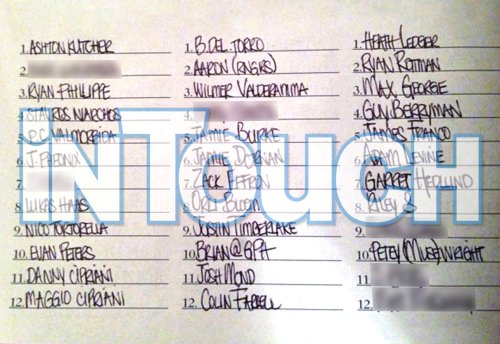 1. ASHTON KUTCHER
2.
3. RYAN PHILLIPE
4. STAVROS NIARCHOS
5. P.C. VALMORBIDA
6. J. PHEONX
7.
8. LUKAS HAAS
9. NICO TORTORELLA
10. EVAN PETERS
11. DANNY CIPRIANI
12. MAGGIO CIPRIANI
1. B. DEL TORRO
2. AARON (RNGRS)
3. WILMER VALDERAMMA
4.
5. JAMIE BURKE
6. JAMIE DORNAN
7. ZACK EFFRON
8. ORLI BLOOM
9. JUSTIN TIMBERLAKE
10. BRIAN @ GPA
11. JOSH MOND
12. COLIN FARRELL
1. HEATH LEDGER
2. RYAN ROTTMAN
3. MAX GEORGE
4. GUY BERRYMAN
5. JAMES FRANCO
6. ADAM LEVINE
7. GARRET HEDLUND
8. RILEY S
9.
10. PETEY (MUSE) WRIGHT
11.
12.
INTOUCH